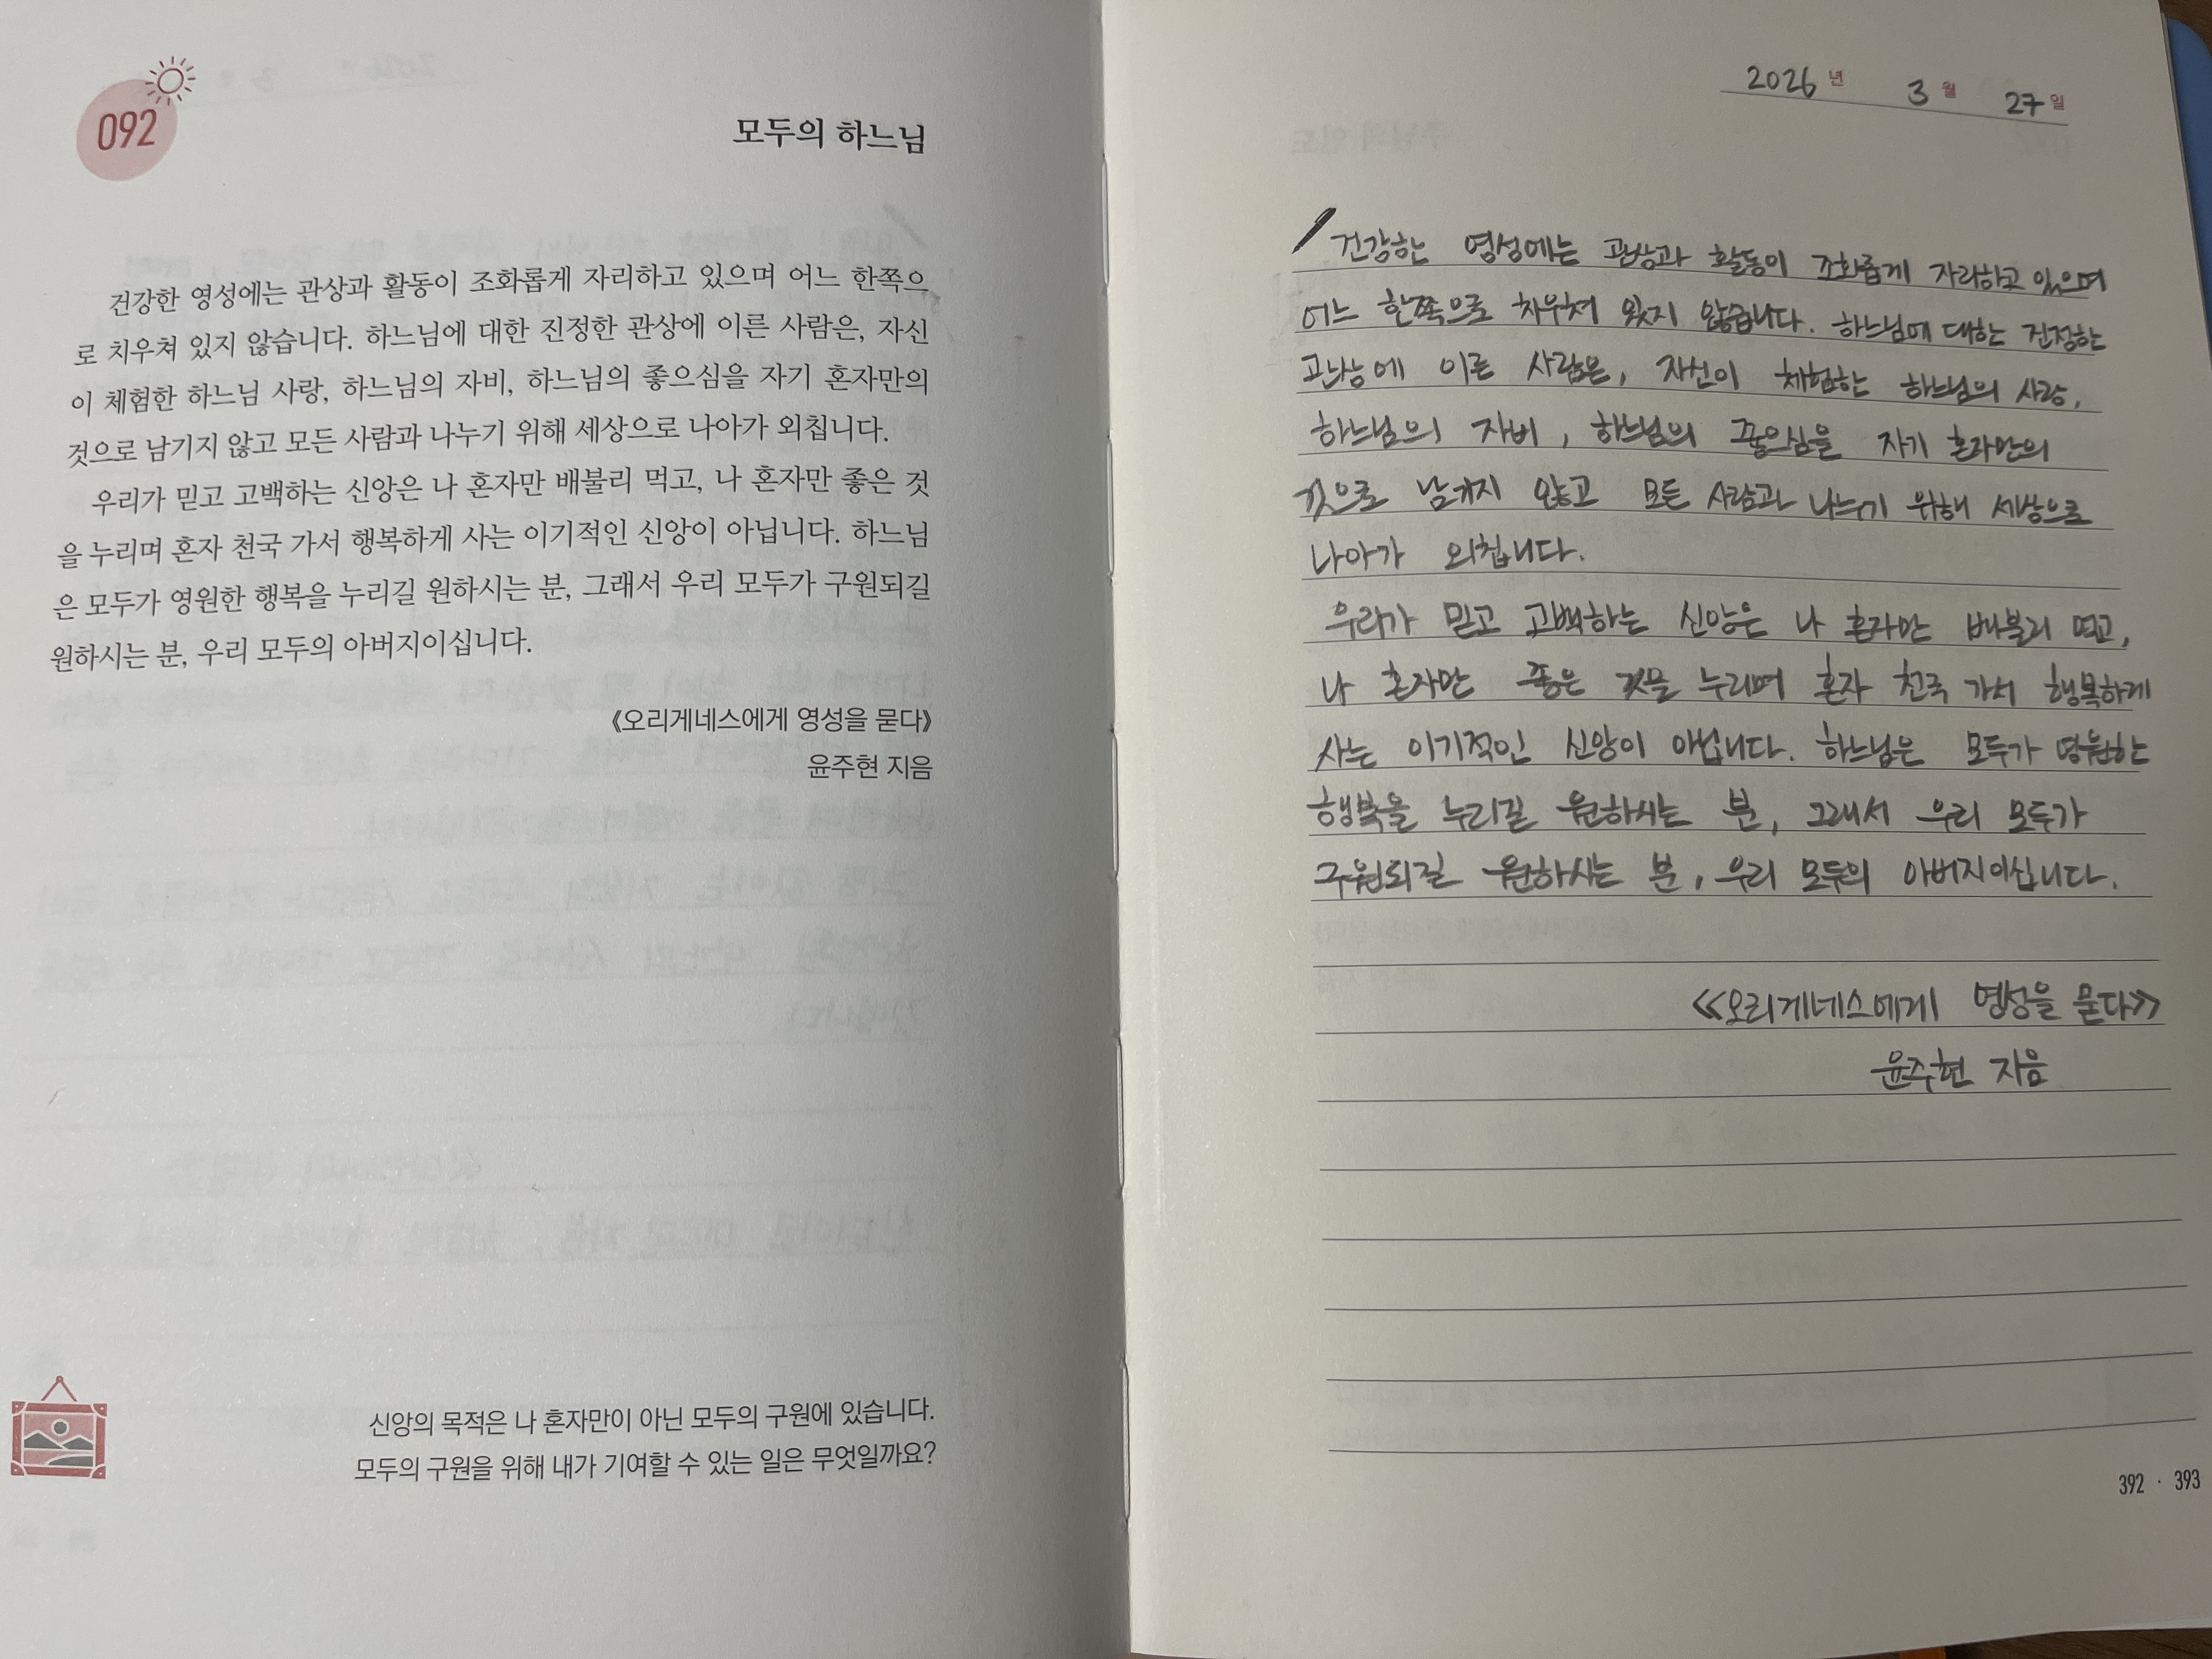 092
모두의 하느님
건강한 영성에는 관상과 활동이 조화롭게 자리하고 있으며 어느 한쪽으
로 치우쳐 있지 않습니다. 하느님에 대한 진정한 관상에 이른 사람은, 자신
이 체험한 하느님 사랑, 하느님의 자비, 하느님의 좋으심을 자기 혼자만의
것으로 남기지 않고 모든 사람과 나누기 위해 세상으로 나아가 외칩니다.
우리가 믿고 고백하는 신앙은 나 혼자만 배불리 먹고, 나 혼자만 좋은 것
을 누리며 혼자 천국 가서 행복하게 사는 이기적인 신앙이 아닙니다. 하느님
은 모두가 영원한 행복을 누리길 원하시는 분, 그래서 우리 모두가 구원되길
원하시는 분, 우리 모두의 아버지이십니다.
《오리게네스에게 영성을 묻다》
윤주현 지음
신앙의 목적은 나 혼자만이 아닌 모두의 구원에 있습니다.
모두의 구원을 위해 내가 기여할 수 있는 일은 무엇일까요?
2026년 3월 27일
건강한 영성에는 관상과 활동이 조화롭게 자리하고 있으며
어느 한쪽으로 치우쳐 있지 않습니다. 하느님에 대한 진정한
에 이른 사람은, 자신이 체험한 하느님의 사랑,
하느님의 자비, 하느님의 좋으심을 자기 혼자만의
것으로 남기지 않고 모든 사람과 나누기 위해 세상으로
나아가 외칩니다.
우리가 믿고 고백하는 신앙은 나 혼자만 배불리 먹고,
나 혼자만 좋은 것을 누리며 혼자 천국 가서 행복하게
사는 이기적인 신앙이 아닙니다. 하느님은 모두가 영원한
행복을 누리길 원하시는 분, 그래서 우리 모두가
구원되길 원하시는 분, 우리 모두의 아버지이십니다.
《오리게네스에게 영성을 묻다》
윤주현 지음
392 · 393